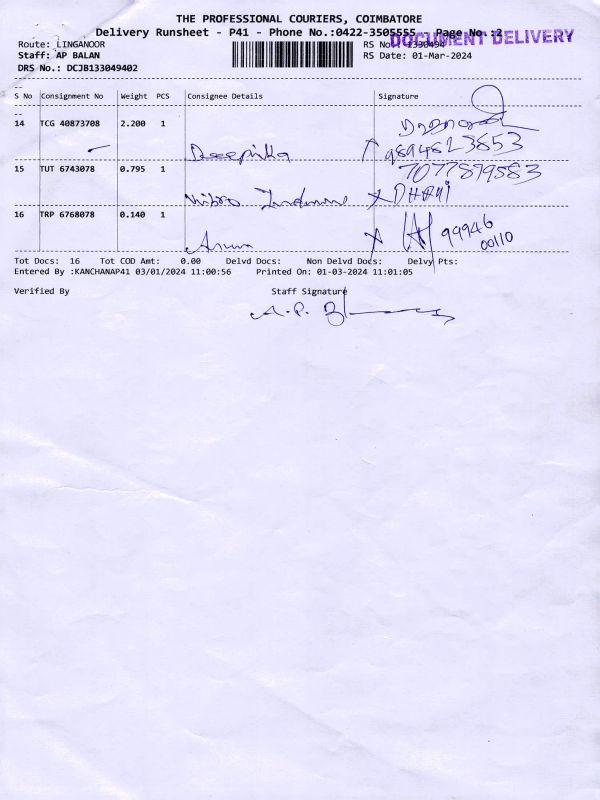 THE PROFESSIONAL COURIERS, COIMBATORE
Delivery Runsheet - P41 - Phone No.:0422-3505555 Page No.:2
DOCUMENT DELIVERY
Route: LINGANOOR RS No.: 1330494
Staff: AP BALAN RS Date: 01-Mar-2024
DRS No.: DCJB133049402
S No Consignment No Weight PCS Consignee Details Signature
14 TCG 40873708 2.200 1
Deepika 9894823853
15 TUT 6743078 0.795 1 7077899583
DHANI
16 TRP 6768078 0.140 1
Arun 99946
00110
Tot Docs: 16 Tot COD Amt: 0.00 Delvd Docs: Non Delvd Docs: Delvy Pts:
Entered By :KANCHANAP41 03/01/2024 11:00:56 Printed On: 01-03-2024 11:01:05
Verified By Staff Signature
A.P. B